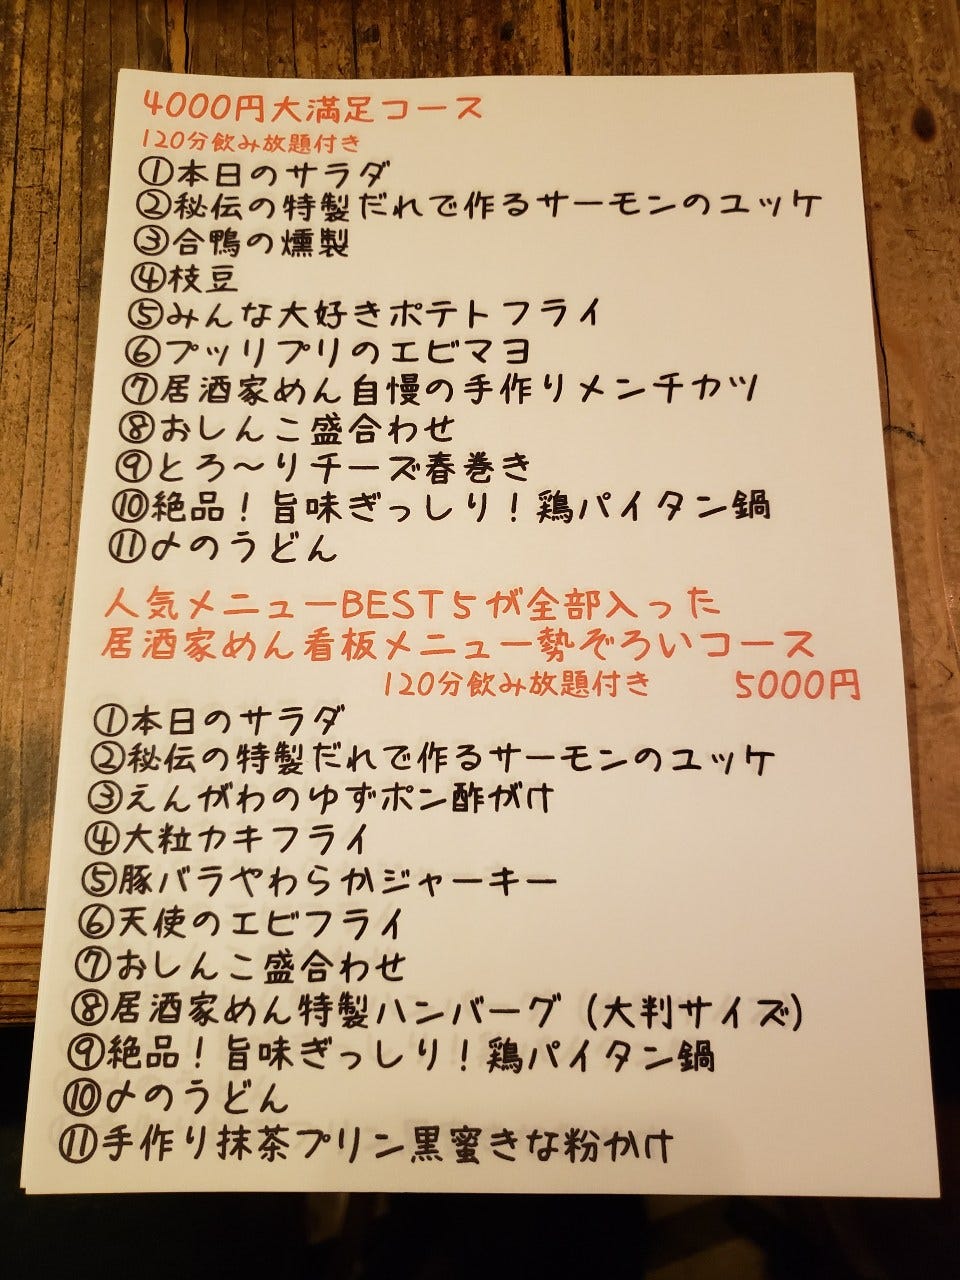 4000円大満足コース
120分飲み放題付き
①本日のサラダ
②秘伝の特製だれで作るサーモンのユッケ
③合鴨の燻製
④枝豆
⑤みんな大好きポテトフライ
⑥プッリプリのエビマヨ
⑦居酒家めん自慢の手作りメンチカツ
⑧おしんこ盛合わせ
⑨とろ〜りチーズ春巻き
⑩絶品！旨味ぎっしり！鶏パイタン鍋
⑪〆のうどん
人気メニューBEST5が全部入った
居酒家めん看板メニュー勢ぞろいコース
120分飲み放題付き 5000円
①本日のサラダ
②秘伝の特製だれで作るサーモンのユッケ
③えんがわのゆずポン酢がけ
④大粒カキフライ
⑤豚バラやわらかジャーキー
⑥天使のエビフライ
⑦おしんこ盛合わせ
⑧居酒家めん特製ハンバーグ（大判サイズ）
⑨絶品！旨味ぎっしり！鶏パイタン鍋
⑩〆のうどん
⑪手作り抹茶プリン黒蜜きな粉かけ